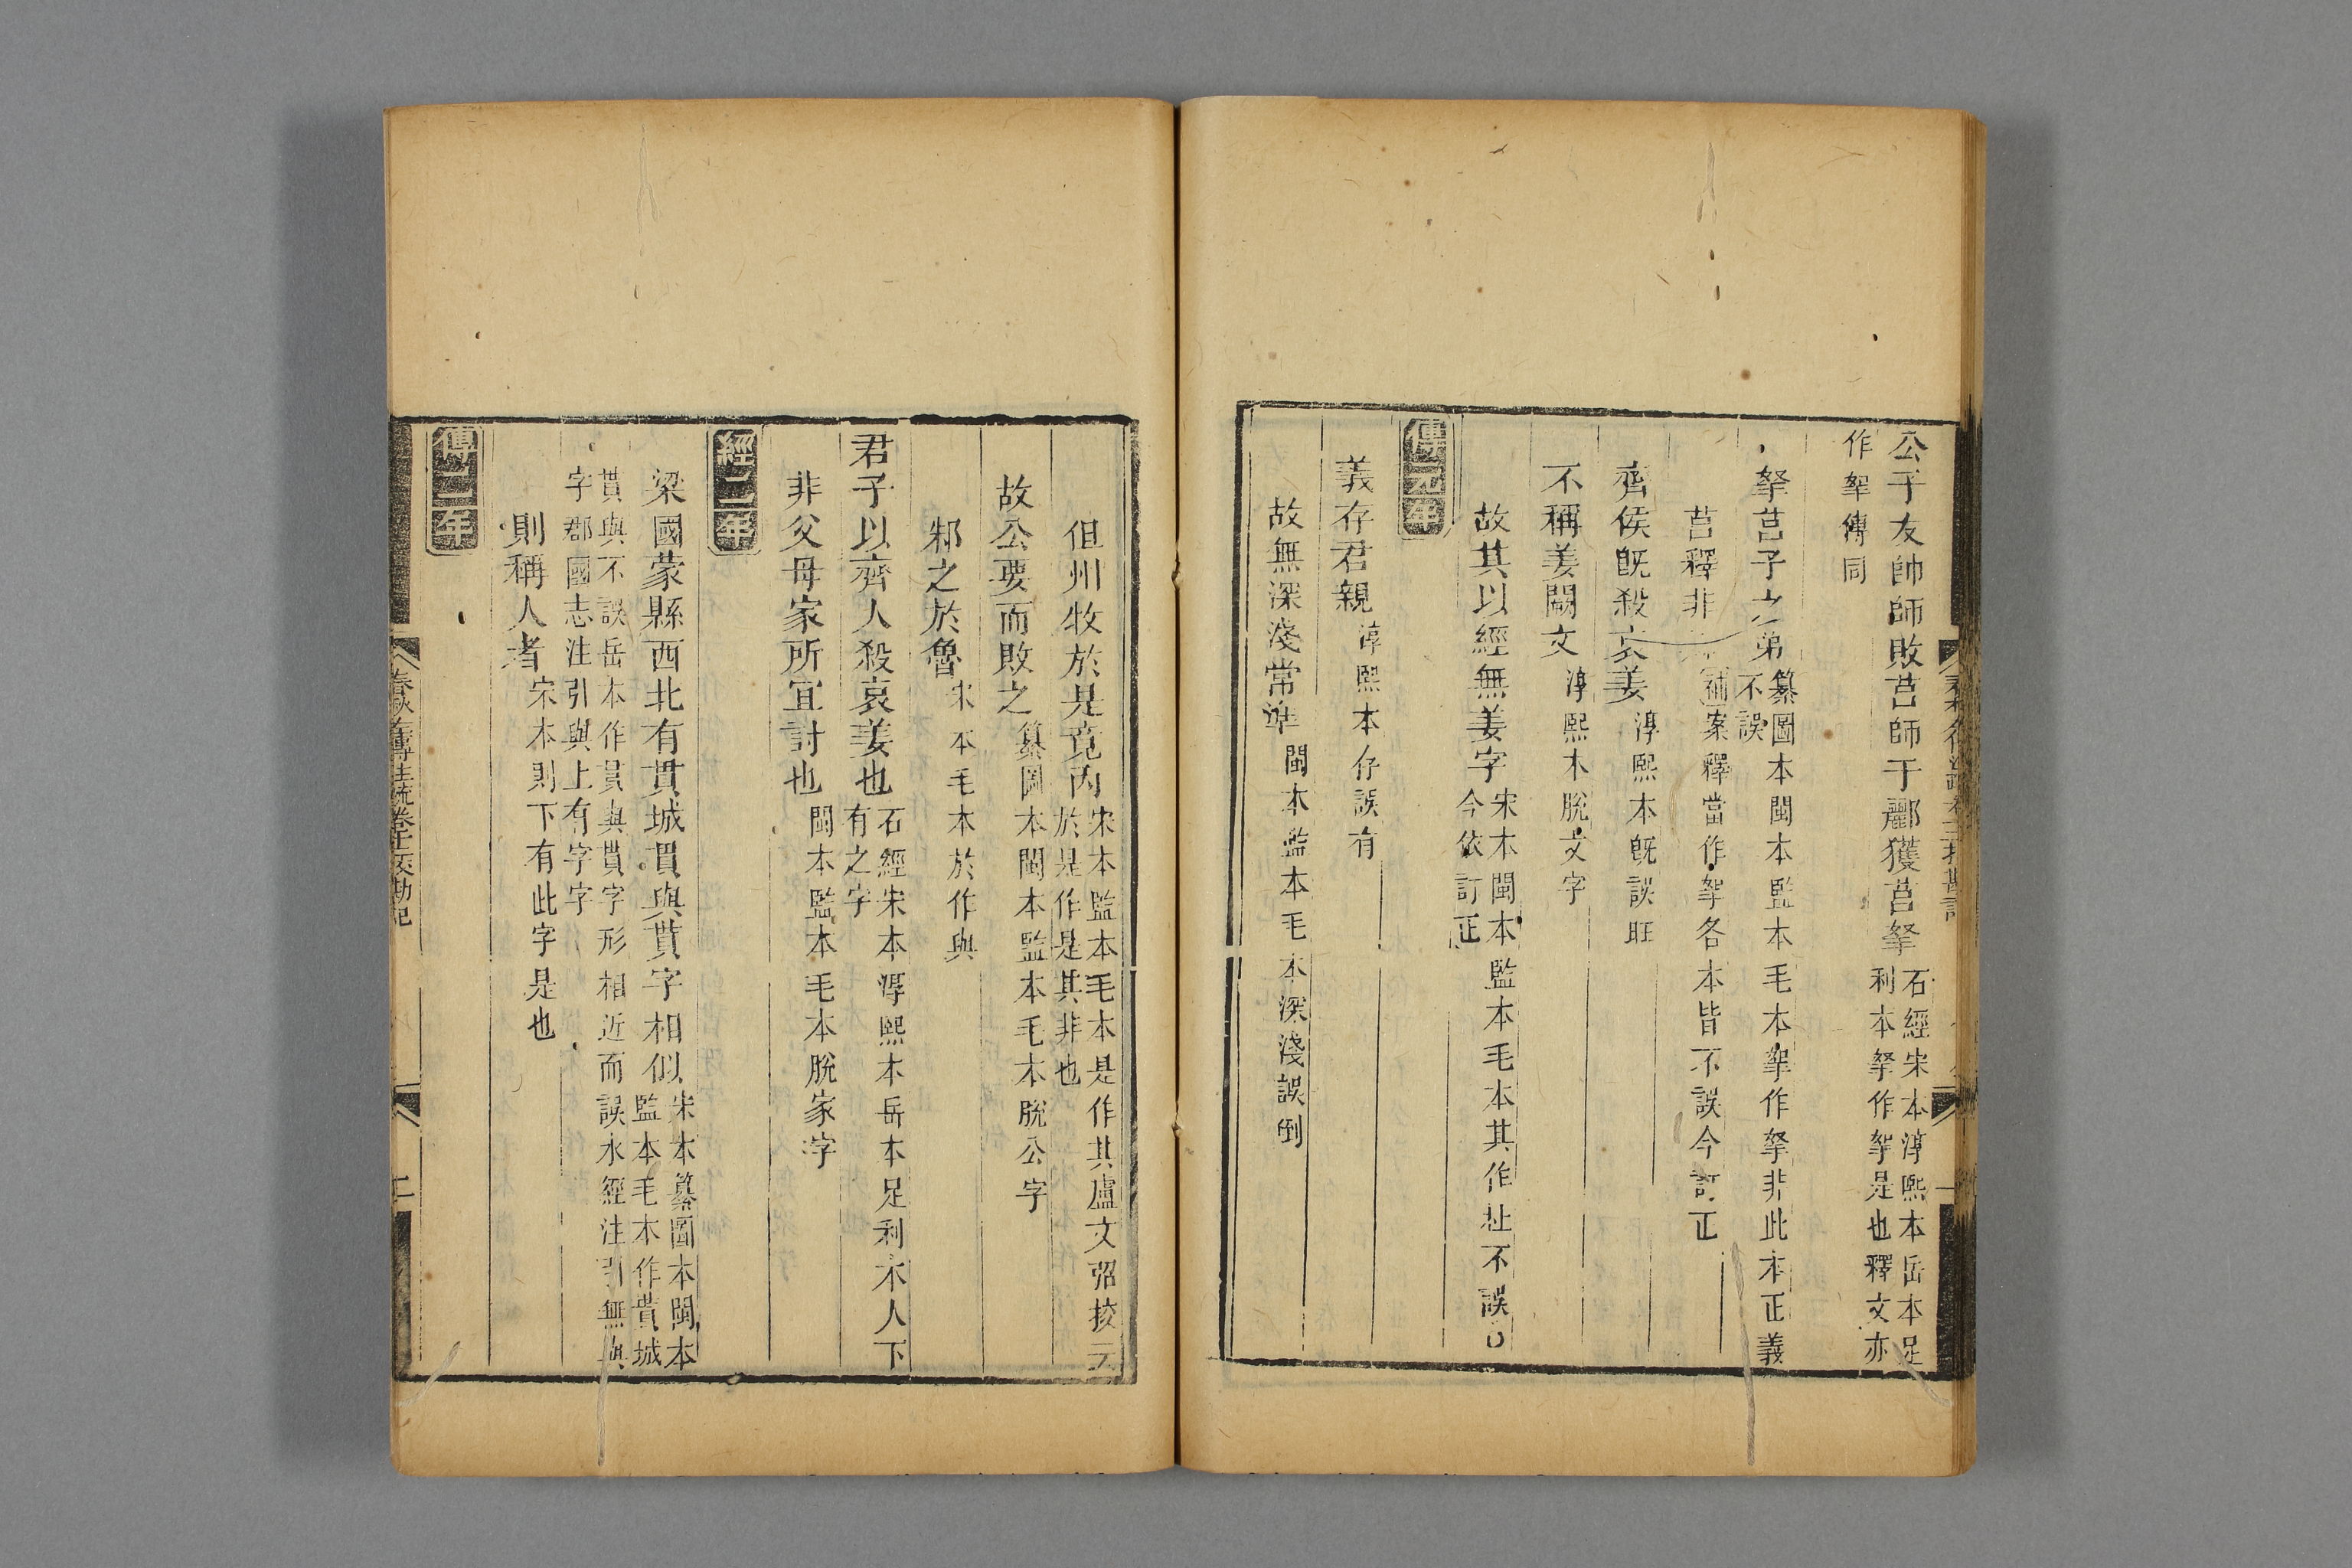 公子友帥師敗莒師于酈獲莒拏石經宋本淳熙本岳本足
利本拏作挐是也釋文亦
作挐傳同
拏莒子之弟纂圖本閩本監本毛本挐作拏非此本正義
不誤
莒釋非補案釋當作挐各本皆不誤今訂正
齊侯旣殺哀姜淳熙本旣誤旺
不稱姜闕文淳熙本脫文字
故其以經無姜字宋本閩本監本毛本其作杜不誤
今依訂正
傳元年
義存君親淳熙本存誤有
故無深淺常準閩本監本毛本深淺誤倒
但州牧於是竟內宋本監本毛本是作其盧文弨挍云
於是作是其非也
故公要而敗之纂圖本閩本監本毛本脫公字
邾之於魯宋本毛本於作與
君子以齊人殺哀姜也石經宋本淳熙本岳本足利本人下
有之字
非父母家所宜討也閩本監本毛本脫家字
經二年
梁國蒙縣西北有貫城貫與貰字相似宋本纂圖本閩本
監本毛本作貰城
貰與不誤岳本作貰與貫字形相近而誤水經注引無與
字郡國志注引與上有字字
則稱人者宋本則下有此字是也
傳二年
春秋左傳注疏卷十二校勘記
二